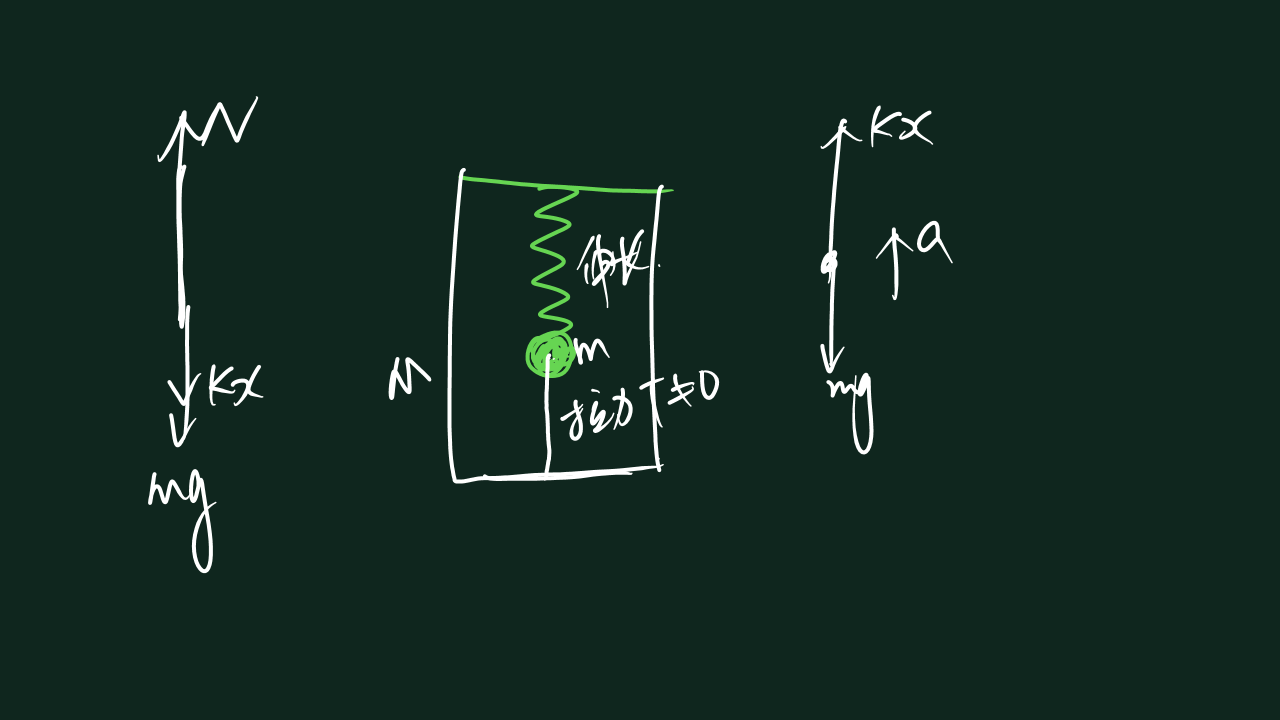 N
kx
mg
M
伸长
m
拉力 T≠0
kx
a
mg